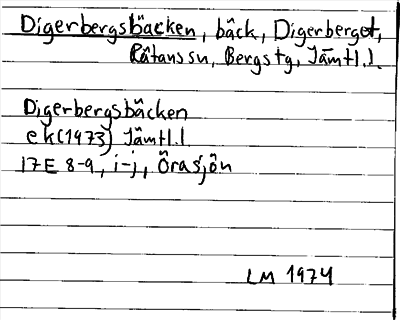 Digerbergsbäcken, bäck, Digerberget,
Rätanssn, Bergstg, Jämtl.l.
Digerbergsbäcken
ek(1973) Jämtl.l
17E 8-9, i-j, Örasjön
LM 1974